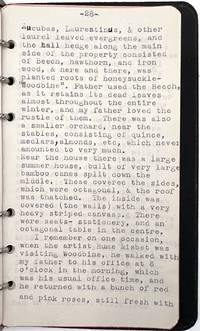 -28-
Aucubas, Laurestinus, & other
laurel leaves evergreens, and
the hall hedge along the main
side of the property consisted
of beech, hawthorn, and iron
wood, & here and there, was
planted roots of honeysuckle-
Woodbine". Father used the Beech,
as it retains its dead leaves
almost throughout the entire
winter, and my father loved the
rustle of them. There was also
a smaller orchard, near the
stables, consisting of quince,
medlars, almonds, etc, which never
amounted to very much.
Near the house there was a large
summer-house, built of very large
bamboo canes split down the
middle. These covered the sides,
which were octagonal, & the roof
was thatched. The inside was
covered (the walls) with a very
heavy striped canvas. There
were seats- stationery, and an
octagonal table in the centre.
I remember on one occasion,
when the artist Hume Nisbet was
visiting Woodbine, he walked with
my father to his office at 8
o'clock in the morning, which
was his usual office time, and
he returned with a bunch of red
and pink roses, still fresh with